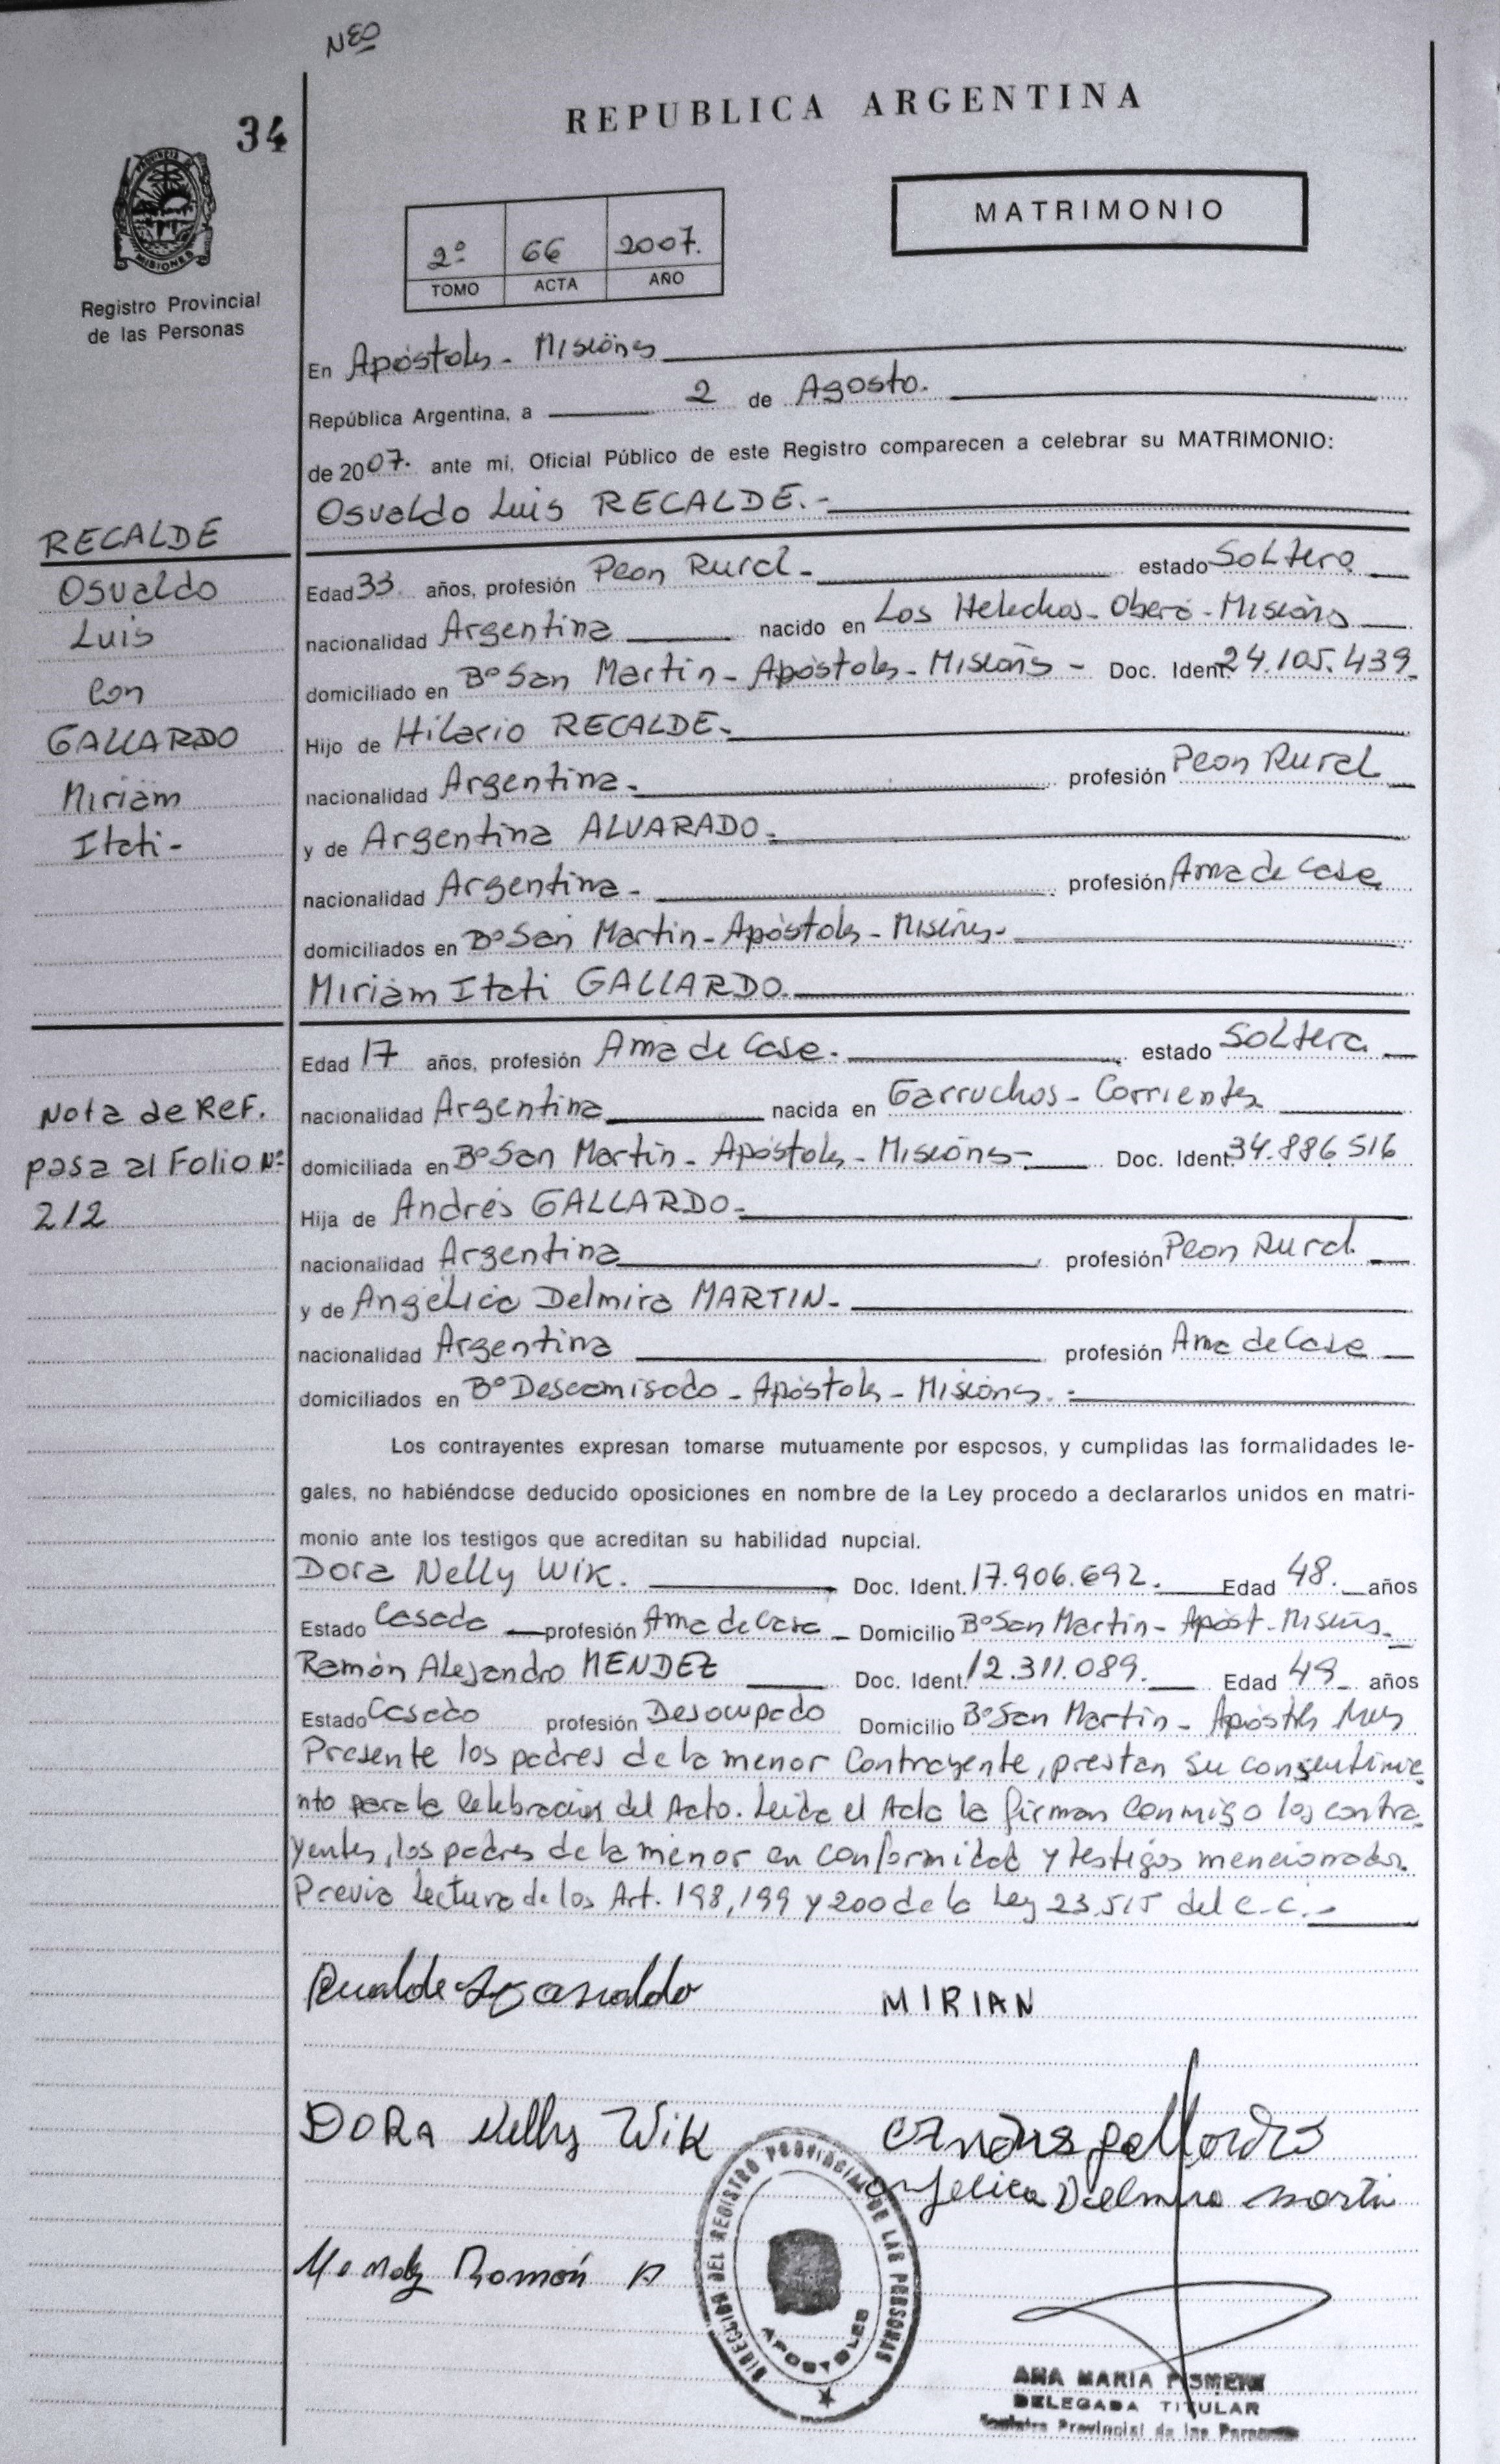 NEO
REPUBLICA ARGENTINA
34
MATRIMONIO
PROVINCIA DE
MISIONES
2º 66 2007.
TOMO ACTA AÑO
Registro Provincial
de las Personas
En Apóstoles - Misiones
República Argentina, a 2 de Agosto.
de 2007. ante mi, Oficial Público de este Registro comparecen a celebrar su MATRIMONIO:
Osvaldo Luis RECALDE.-
RECALDE
Osvaldo
Luis
Con
GALLARDO
Miriam
Itati-
Edad 33 años, profesión Peon Rural - estado Soltero
nacionalidad Argentina nacido en Los Helechos - Oberá - Misiones
domiciliado en Bº San Martin - Apóstoles - Misiones - Doc. Ident. 24.105.439.
Hijo de Hilario RECALDE -
nacionalidad Argentina - profesión Peon Rural
y de Argentina ALVARADO -
nacionalidad Argentina - profesión Ama de Casa
domiciliados en Bº San Martin - Apóstoles - Misiones -
Miriam Itati GALLARDO
Edad 17 años, profesión Ama de Casa - estado Soltera
nacionalidad Argentina nacida en Garruchos - Corrientes
domiciliada en Bº San Martin - Apóstoles - Misiones - Doc. Ident. 34.886.516
Hija de Andrés GALLARDO -
nacionalidad Argentina profesión Peon Rural
y de Angélica Delmira MARTIN -
nacionalidad Argentina profesión Ama de Casa
domiciliados en Bº Descamisado - Apóstoles - Misiones. -
Nota de Ref.
pasa al Folio Nº
212
Los contrayentes expresan tomarse mutuamente por esposos, y cumplidas las formalidades le-
gales, no habiéndose deducido oposiciones en nombre de la Ley procedo a declararlos unidos en matri-
monio ante los testigos que acreditan su habilidad nupcial.
Dora Nelly WIK. Doc. Ident. 17.906.692. Edad 48. años
Estado Casada profesión Ama de Casa - Domicilio Bº San Martin - Apóst. - Misiones.
Ramón Alejandro MENDEZ Doc. Ident. 12.311.089. Edad 49 años
Estado Casado profesión Desocupado Domicilio Bº San Martin - Apóstles Mnes
Presente los padres de la menor Contrayente, prestan su consentimie
nto para la Celebración del Acto. Leida el Acta la firman Conmigo los contra
yentes, los padres de la menor en conformidad y testigos mencionados.
Previa Lectura de los Art. 198, 199 y 200 de la Ley 23.515 del C.C. -
Recalde Osvaldo
MIRIAN
DORA Nelly Wik
Andres gallardo
angelica Delmira Martin
Mendez Ramón A
DIRECCION DEL REGISTRO PROVINCIAL DE LAS PERSONAS
APOSTOLES
ANA MARIA
DELEGADA TITULAR
Registro Provincial de las Personas